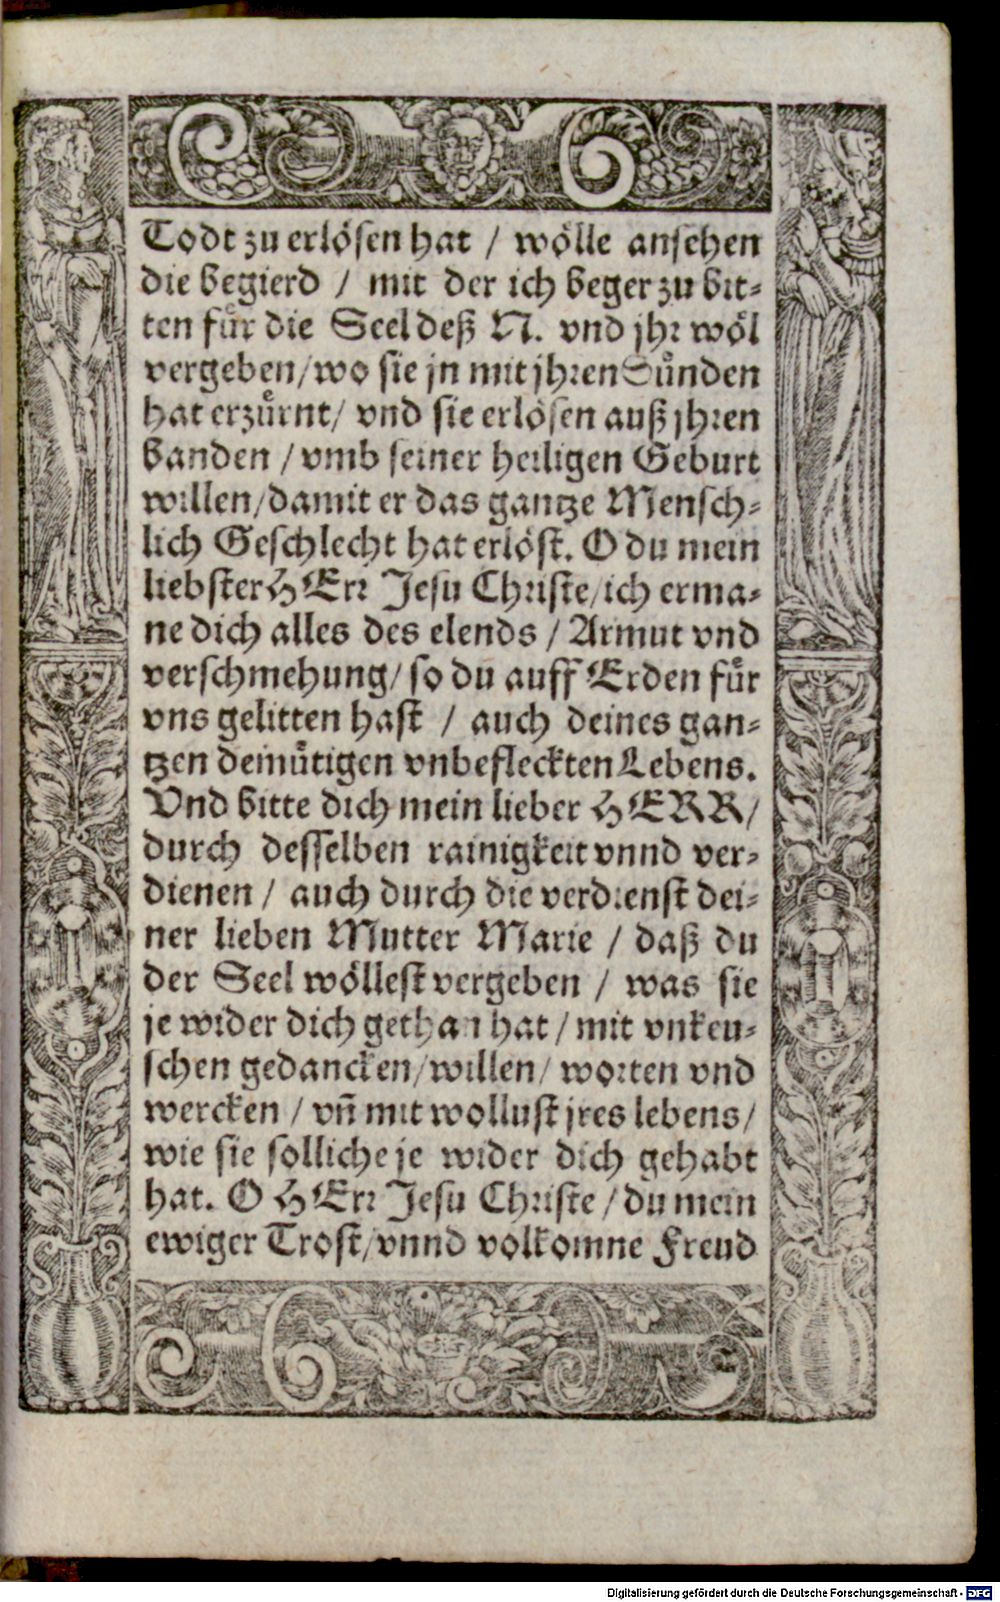 Todt zu erlösen hat / wölle ansehen
die begierd / mit der ich beger zu bit-
ten fuͤr die Seel deß N. vnd jhr wöl
vergeben / wo sie jn mit jhren Suͤnden
hat erzuͤrnt / vnd sie erlösen auß jhren
banden / vmb seiner heiligen Geburt
willen / damit er das gantze Mensch-
lich Geschlecht hat erlöst. O du mein
liebster HErr Jesu Christe / ich erma-
ne dich alles des elends / Armut vnd
verschmehung / so du auff Erden fuͤr
vns gelitten hast / auch deines gan-
tzen demuͤtigen vnbefleckten Lebens.
Vnd bitte dich mein lieber HERR /
durch desselben rainigkeit vnnd ver-
dienen / auch durch die verdienst dei-
ner lieben Mutter Marie / daß du
der Seel wöllest vergeben / was sie
je wider dich gethan hat / mit vnkeu-
schen gedancken / willen / worten vnd
wercken / vñ mit wollust jres lebens /
wie sie solliche je wider dich gehabt
hat. O HErr Jesu Christe / du mein
ewiger Trost / vnnd volkomne Freud
Digitalisierung gefördert durch die Deutsche Forschungsgemeinschaft - DFG